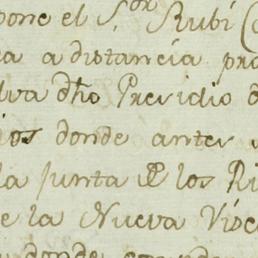 pone el S.or Rubí (
a a distancia pro
lva dho Presidio d
ios donde antes
la Junta de los Ri
e la Nueva Visc
donde